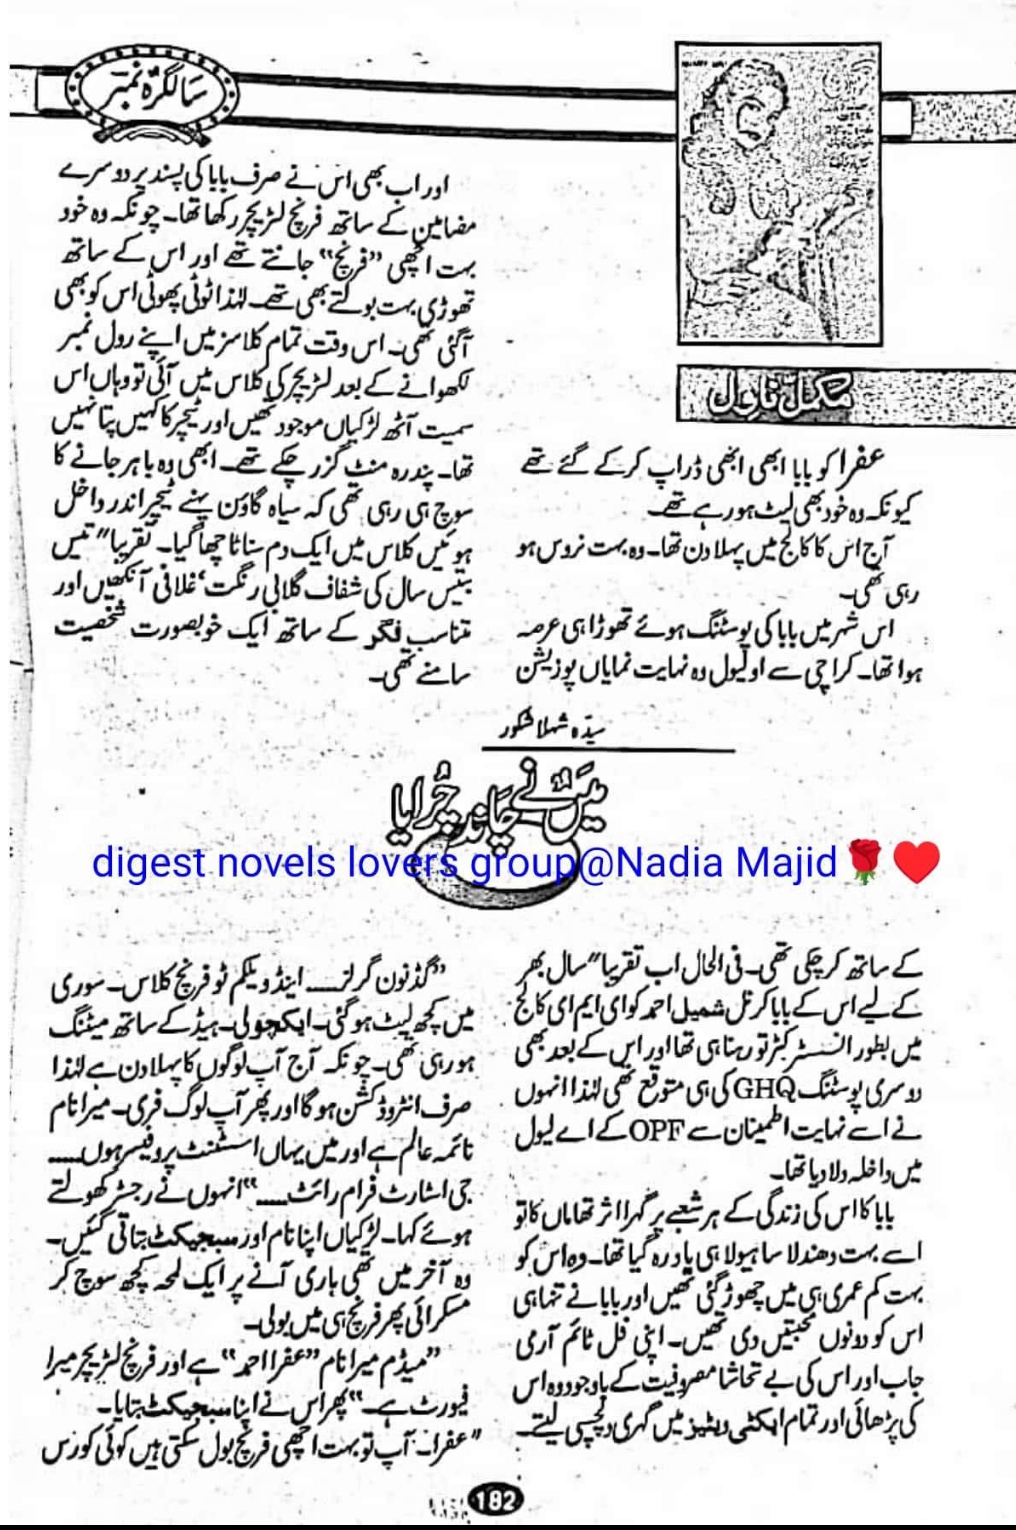 سالگرہ نمبر
مکمل ناول
عفرا کو بابا ابھی ابھی ڈراپ کر کے گئے تھے
کیونکہ وہ خود بھی لیٹ ہو رہے تھے۔
آج اس کا کالج میں پہلا دن تھا۔ وہ بہت نروس ہو
رہی تھی۔
اس شہر میں بابا کی پوسٹنگ ہوئے تھوڑا ہی عرصہ
ہوا تھا۔ کراچی سے او لیول وہ نہایت نمایاں پوزیشن
سیدہ شہلا شکور
میں نے چاند چرایا
digest novels lovers group@Nadia Majid🌹❤️
کے ساتھ کر چکی تھی۔ فی الحال اب تقریباً سال بھر
کے لیے اس کے بابا کرنل شمیل احمد کو ای ایم ای کالج
میں بطور انسٹرکٹر تو رہنا ہی تھا اور اس کے بعد بھی
دوسری پوسٹنگ GHQ کی ہی متوقع تھی لہٰذا انہوں
نے اسے نہایت اطمینان سے OPF کے اے لیول
میں داخلہ دلا دیا تھا۔
بابا کا اس کی زندگی کے ہر شعبے پر گہرا اثر تھا ماں کا تو
اسے بہت دھندلا سا ہیولا ہی یاد رہ گیا تھا۔ وہ اس کو
بہت کم عمری ہی میں چھوڑ گئی تھیں اور بابا نے تنہا ہی
اس کو دونوں محبتیں دی تھیں۔ اپنی فل ٹائم آرمی
جاب اور اس کی بے تحاشا مصروفیت کے باوجود وہ اس
کی پڑھائی اور تمام ایکٹی ویٹیز میں گہری دلچسپی لیتے۔
اور اب بھی اس نے صرف بابا کی پسند پر دوسرے
مضامین کے ساتھ فرنچ لٹریچر رکھا تھا۔ چونکہ وہ خود
بہت اچھی "فرنچ" جانتے تھے اور اس کے ساتھ
تھوڑی بہت بولتے بھی تھے۔ لہٰذا ٹوٹی پھوٹی اس کو بھی
آگئی تھی۔ اس وقت تمام کلاسز میں اپنے رول نمبر
لکھوانے کے بعد لٹریچر کی کلاس میں آئی تو وہاں اس
سمیت آٹھ لڑکیاں موجود تھیں اور ٹیچر کا کہیں پتا نہیں
تھا۔ پندرہ منٹ گزر چکے تھے۔ ابھی وہ باہر جانے کا
سوچ ہی رہی تھی کہ سیاہ گاؤن پہنے ٹیچر اندر داخل
ہوئیں کلاس میں ایک دم سناٹا چھا گیا۔ تقریباً تیس
بتیس سال کی شفاف گلابی رنگت، غلافی آنکھیں اور
متناسب فگر کے ساتھ ایک خوبصورت شخصیت
سامنے تھی۔
"گڈ نون گرلز ـــ اینڈ ویلکم ٹو فرنچ کلاس۔ سوری
میں کچھ لیٹ ہو گئی۔ ایکچولی۔ ہیڈ کے ساتھ میٹنگ
ہو رہی تھی۔ چونکہ آج آپ لوگوں کا پہلا دن ہے لہٰذا
صرف انٹروڈکشن ہو گا اور پھر آپ لوگ فری۔ میرا نام
نائمہ عالم ہے اور میں یہاں اسسٹنٹ پروفیسر ہوں ـــ
جی اسٹارٹ فرام رائٹ ـــ" انہوں نے رجسٹر کھولتے
ہوئے کہا۔ لڑکیاں اپنا نام اور سبجیکٹ بتاتی گئیں۔
وہ آخر میں تھی باری آنے پر ایک لمحہ کچھ سوچ کر
مسکرائی پھر فرنچ ہی میں بولی۔
"میڈم میرا نام "عفرا احمد" ہے اور فرنچ لٹریچر میرا
فیورٹ ہے۔" پھر اس نے اپنا سبجیکٹ بتایا۔
"عفرا۔ آپ تو بہت اچھی فرنچ بول سکتی ہیں کوئی کورس
182